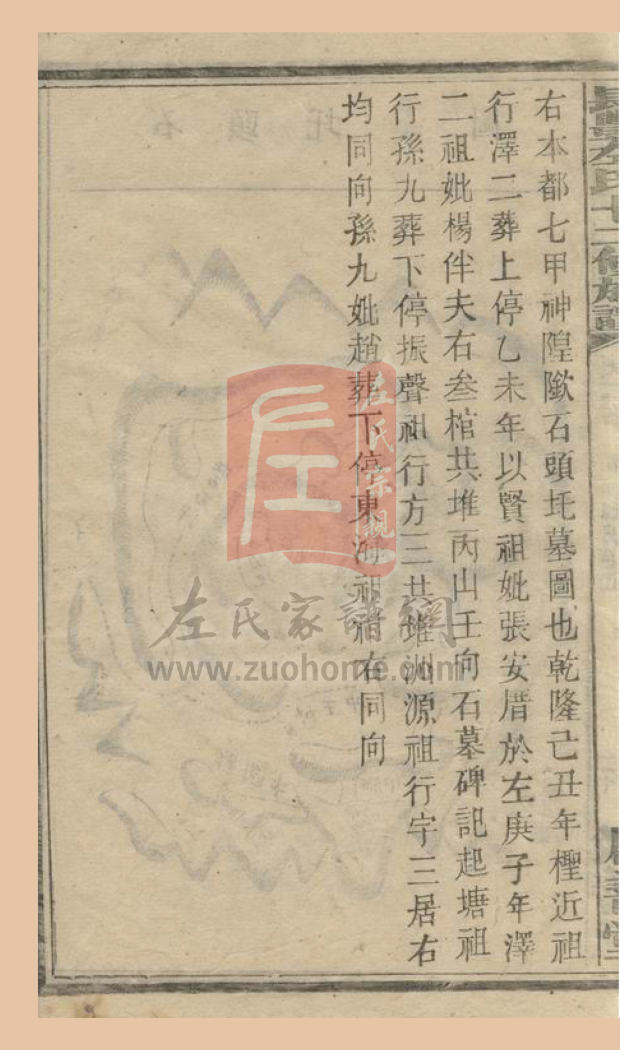 右本都七甲神隍隞石頭坉墓圖也乾隆己丑年樫近祖
行澤二葬上停乙未年以賢祖妣張安厝於左庚子年澤
二祖妣楊伴夫右叁棺共堆丙山壬向石墓碑記起塘祖
行孫九葬下停振聲祖行方三共堆洲源祖行宇三居右
均同向孫九妣趙葬下停東海祖右同向
左氏十二修族譜
左氏宗親
左氏家譜網
www.zuohome.com